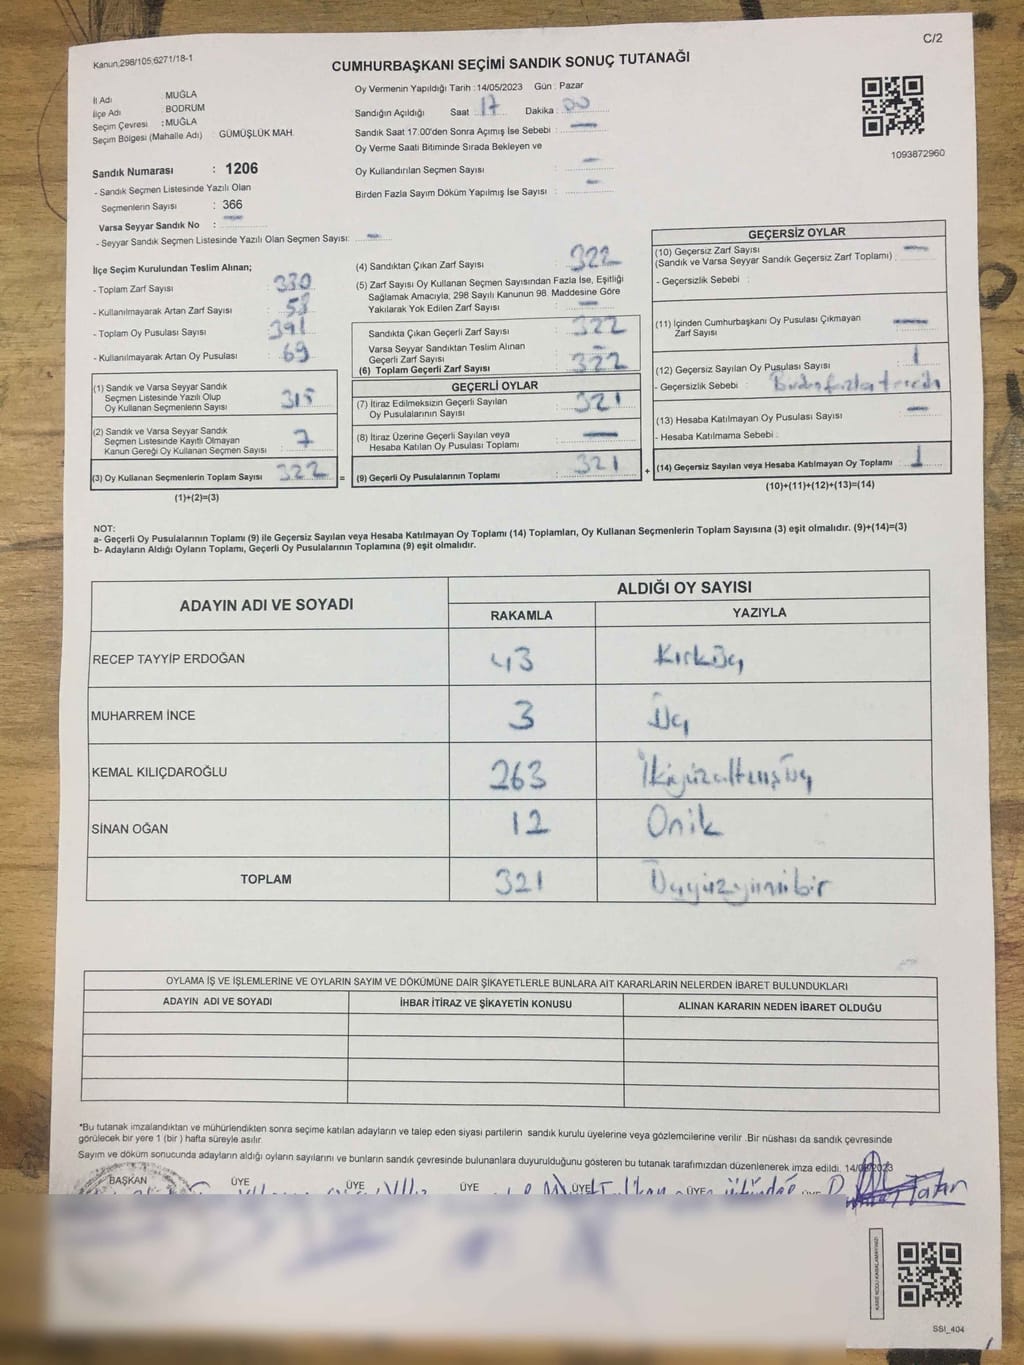 C/2
Kanun,298/105;6271/18-1
CUMHURBAŞKANI SEÇİMİ SANDIK SONUÇ TUTANAĞI
İl Adı : MUĞLA
İlçe Adı : BODRUM
Seçim Çevresi : MUĞLA
Seçim Bölgesi (Mahalle Adı) : GÜMÜŞLÜK MAH.
Sandık Numarası : 1206
- Sandık Seçmen Listesinde Yazılı Olan
Seçmenlerin Sayısı : 366
Varsa Seyyar Sandık No : —
- Seyyar Sandık Seçmen Listesinde Yazılı Olan Seçmen Sayısı: —
Oy Vermenin Yapıldığı Tarih : 14/05/2023 Gün : Pazar
Sandığın Açıldığı Saat : 17 Dakika : 00
Sandık Saat 17.00'den Sonra Açımış İse Sebebi : —
Oy Verme Saati Bitiminde Sırada Bekleyen ve
Oy Kullandırılan Seçmen Sayısı : —
Birden Fazla Sayım Döküm Yapılmış İse Sayısı : —
1093872960
İlçe Seçim Kurulundan Teslim Alınan;
- Toplam Zarf Sayısı : 380
- Kullanılmayarak Artan Zarf Sayısı : 58
- Toplam Oy Pusulası Sayısı : 391
- Kullanılmayarak Artan Oy Pusulası : 69
(1) Sandık ve Varsa Seyyar Sandık
Seçmen Listesinde Yazılı Olup
Oy Kullanan Seçmenlerin Sayısı : 315
(2) Sandık ve Varsa Seyyar Sandık
Seçmen Listesinde Kayıtlı Olmayan
Kanun Gereği Oy Kullanan Seçmen Sayısı : 7
(3) Oy Kullanan Seçmenlerin Toplam Sayısı : 322 =
(1)+(2)=(3)
(4) Sandıktan Çıkan Zarf Sayısı : 322
(5) Zarf Sayısı Oy Kullanan Seçmen Sayısından Fazla İse, Eşitliği
Sağlamak Amacıyla, 298 Sayılı Kanunun 98. Maddesine Göre
Yakılarak Yok Edilen Zarf Sayısı : —
Sandıkta Çıkan Geçerli Zarf Sayısı : 322
Varsa Seyyar Sandıktan Teslim Alınan
Geçerli Zarf Sayısı : —
(6) Toplam Geçerli Zarf Sayısı : 322
GEÇERLİ OYLAR
(7) İtiraz Edilmeksizin Geçerli Sayılan
Oy Pusulalarının Sayısı : 321
(8) İtiraz Üzerine Geçerli Sayılan veya
Hesaba Katılan Oy Pusulası Toplamı : —
(9) Geçerli Oy Pusulalarının Toplamı : 321 +
GEÇERSİZ OYLAR
(10) Geçersiz Zarf Sayısı
(Sandık ve Varsa Seyyar Sandık Geçersiz Zarf Toplamı) : —
- Geçersizlik Sebebi :
(11) İçinden Cumhurbaşkanı Oy Pusulası Çıkmayan
Zarf Sayısı : —
(12) Geçersiz Sayılan Oy Pusulası Sayısı : 1
- Geçersizlik Sebebi : Birden fazla tercih
(13) Hesaba Katılmayan Oy Pusulası Sayısı : —
- Hesaba Katılmama Sebebi :
(14) Geçersiz Sayılan veya Hesaba Katılmayan Oy Toplamı : 1
(10)+(11)+(12)+(13)=(14)
NOT:
a- Geçerli Oy Pusulalarının Toplamı (9) ile Geçersiz Sayılan veya Hesaba Katılmayan Oy Toplamı (14) Toplamları, Oy Kullanan Seçmenlerin Toplam Sayısına (3) eşit olmalıdır. (9)+(14)=(3)
b- Adayların Aldığı Oyların Toplamı, Geçerli Oy Pusulalarının Toplamına (9) eşit olmalıdır.
ADAYIN ADI VE SOYADI
ALDIĞI OY SAYISI
RAKAMLA YAZIYLA
RECEP TAYYİP ERDOĞAN 43 Kırküç
MUHARREM İNCE 3 Üç
KEMAL KILIÇDAROĞLU 263 İkiyüzaltmışÜç
SİNAN OĞAN 12 Onik
TOPLAM 321 Üçyüzyirmibir
OYLAMA İŞ VE İŞLEMLERİNE VE OYLARIN SAYIM VE DÖKÜMÜNE DAİR ŞİKAYETLERLE BUNLARA AİT KARARLARIN NELERDEN İBARET BULUNDUKLARI
ADAYIN ADI VE SOYADI İHBAR İTİRAZ VE ŞİKAYETİN KONUSU ALINAN KARARIN NEDEN İBARET OLDUĞU
*Bu tutanak imzalandıktan ve mühürlendikten sonra seçime katılan adayların ve talep eden siyasi partilerin sandık kurulu üyelerine veya gözlemcilerine verilir .Bir nüshası da sandık çevresinde
görülecek bir yere 1 (bir ) hafta süreyle asılır.
Sayım ve döküm sonucunda adayların aldığı oyların sayılarını ve bunların sandık çevresinde bulunanlara duyurulduğunu gösteren bu tutanak tarafımızdan düzenlenerek imza edildi.
BAŞKAN ÜYE ÜYE ÜYE ÜYE ÜYE
SSI_404